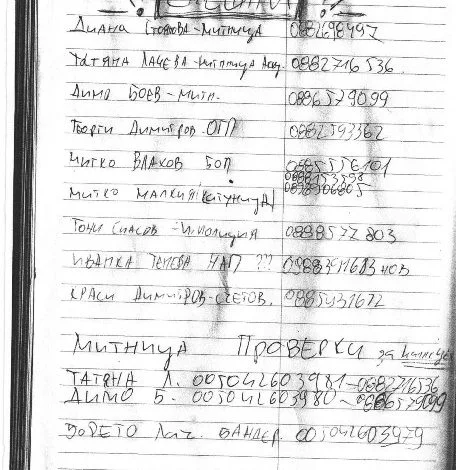 Диана Стоякова - митница 0882698497
Татяна Лачева - митница Асен. 0882716536
Димо Боев - митн. 0886579099
Георги Димитров ОГП 0882593362
Митко Влахов БОП 0885556101
Митко Малкия (Катуница)
Тони Спасов - И.полиция 0888572803
Иванка Телева НАП ??
Краси Димитров - счетов. 0885431672
Митница Проверки за
Татяна Л. 005042603981 - 0882716536
Димо Б. - 005042603980 - 0886579099
Бандер. 005042603979